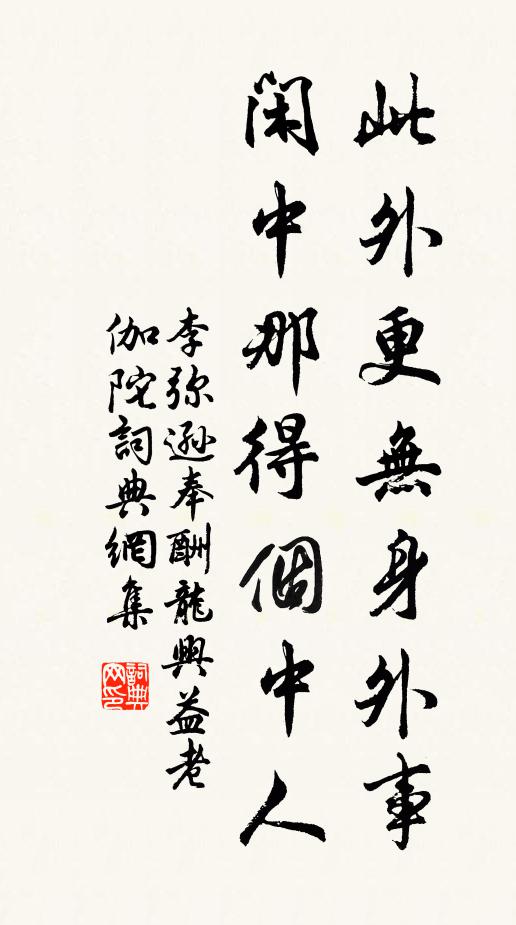 此外更無身外事
閑中那得個中人
李弥遜奉酬龍興益老
伽陀詞典網集
詞典网印